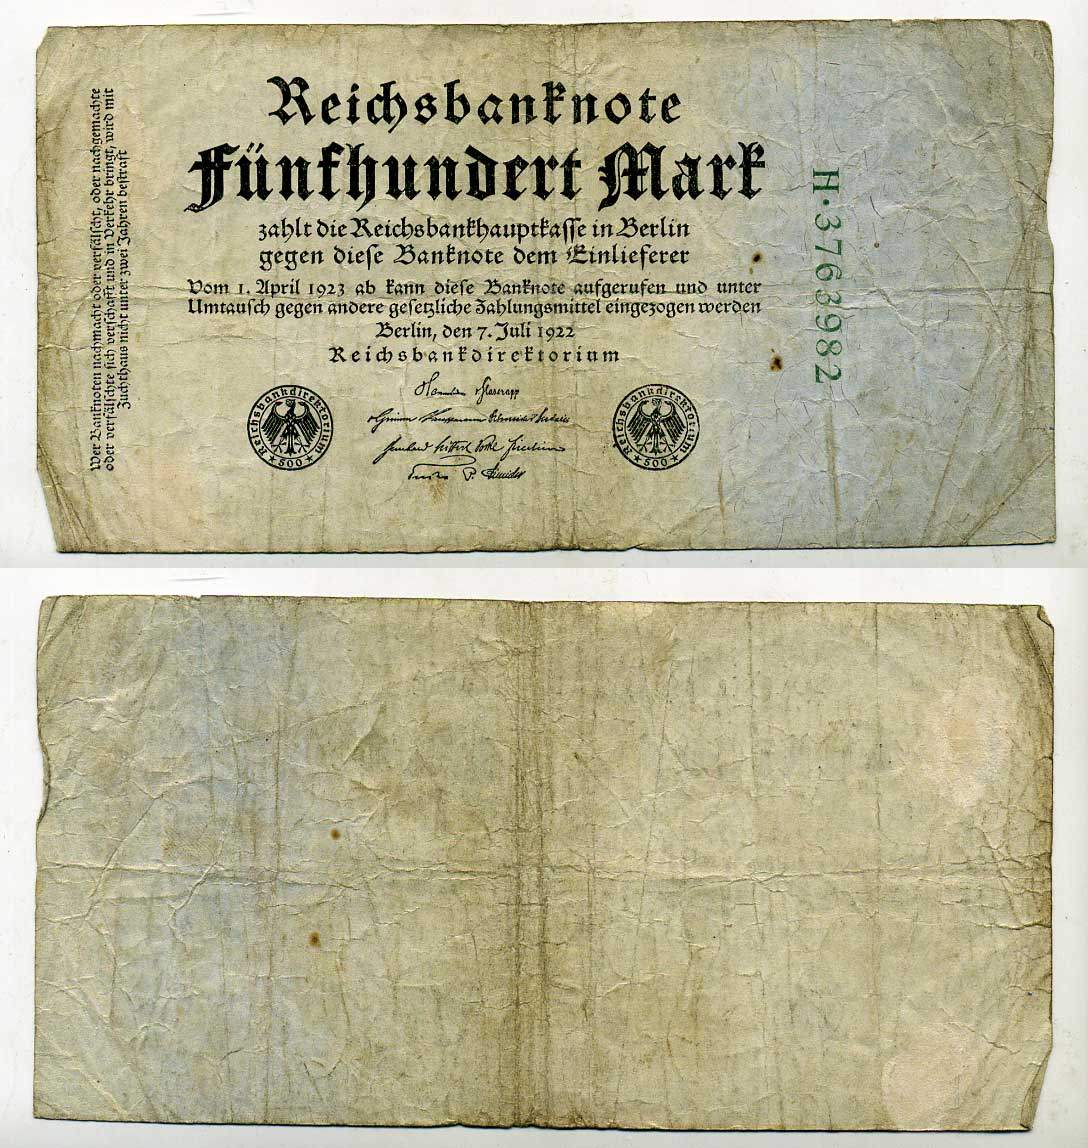 Reichsbanknote
Fünfhundert Mark
zahlt die Reichsbankhauptkasse in Berlin
gegen diese Banknote dem Einlieferer
Vom 1. April 1923 ab kann diese Banknote aufgerufen und unter
Umtausch gegen andere gesetzliche Zahlungsmittel eingezogen werden
Berlin, den 7. Juli 1922
Reichsbankdirektorium
Reichsbankdirektorium
500
Reichsbankdirektorium
500
Wer Banknoten nachmacht oder verfälscht, oder nachgemachte
oder verfälschte sich verschafft und in Verkehr bringt, wird mit
Zuchthaus nicht unter zwei Jahren bestraft
H·3763982